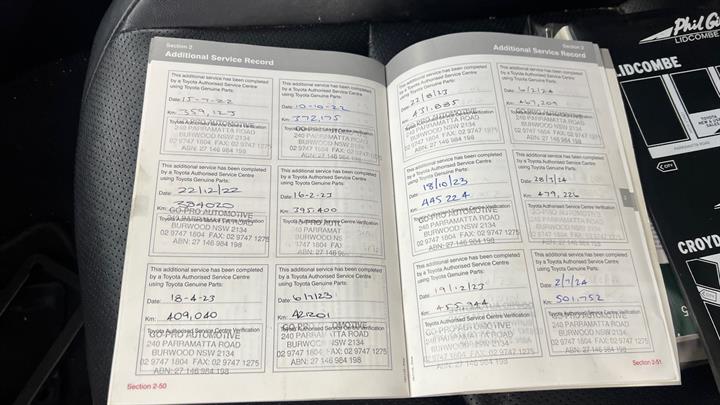 Section 2
Additional Service Record
This additional service has been completed
by a Toyota Authorised Service Centre
using Toyota Genuine Parts:
Date: 15-7-22
Km: 359,125
Toyota Authorised Service Centre Verification
240 PARRAMATTA ROAD
BURWOOD NSW 2134
02 9747 1804 FAX: 02 9747 1275
ABN: 27 146 984 198
This additional service has been completed
by a Toyota Authorised Service Centre
using Toyota Genuine Parts:
Date: 10-10-22
Km: 372,175
Toyota Authorised Service Centre Verification
GO-PRO AUTOMOTIVE
240 PARRAMATTA ROAD
BURWOOD NSW 2134
02 9747 1804 FAX: 02 9747 1275
ABN: 27 146 984 198
This additional service has been completed
by a Toyota Authorised Service Centre
using Toyota Genuine Parts:
Date: 22/12/22
Km: 384020
Toyota Authorised Service Centre Verification
GO-PRO AUTOMOTIVE
240 PARRAMATTA ROAD
BURWOOD NSW 2134
02 9747 1804 FAX: 02 9747 1275
ABN: 27 146 984 198
This additional service has been completed
by a Toyota Authorised Service Centre
using Toyota Genuine Parts:
Date: 16-2-23
Km: 395400
Toyota Authorised Service Centre Verification
This additional service has been completed
by a Toyota Authorised Service Centre
using Toyota Genuine Parts:
Date: 18-4-23
Km: 409,040
Toyota Authorised Service Centre Verification
GO-PRO AUTOMOTIVE
240 PARRAMATTA ROAD
BURWOOD NSW 2134
02 9747 1804 FAX: 02 9747 1275
ABN: 27 146 984 198
This additional service has been completed
by a Toyota Authorised Service Centre
using Toyota Genuine Parts:
Date: 6/7/23
Km: 421201
Toyota Authorised Service Centre Verification
GO-PRO AUTOMOTIVE
240 PARRAMATTA ROAD
BURWOOD NSW 2134
02 9747 1804 FAX: 02 9747 1275
ABN: 27 146 984 198
Section 2-50
Section 2
Additional Service Record
This additional service has been completed
by a Toyota Authorised Service Centre
using Toyota Genuine Parts:
Date: 22/8/23
Km: 431.885
GO-PRO AUTOMOTIVE
240 PARRAMATTA ROAD
BURWOOD NSW 2134
02 9747 1804 FAX: 02 9747 1275
ABN: 27 146 984 198
This additional service has been completed
by a Toyota Authorised Service Centre
using Toyota Genuine Parts:
Date: 6/2/24
Km: 467,209
Toyota Authorised Service Centre Verification
This additional service has been completed
by a Toyota Authorised Service Centre
using Toyota Genuine Parts:
Date: 18/10/23
Km: 445224
GO-PRO AUTOMOTIVE
240 PARRAMATTA ROAD
BURWOOD NSW 2134
02 9747 1804 FAX: 02 9747 1275
ABN: 27 146 984 198
This additional service has been completed
by a Toyota Authorised Service Centre
using Toyota Genuine Parts:
Km: 479,226
Toyota Authorised Service Centre Verification
This additional service has been completed
by a Toyota Authorised Service Centre
using Toyota Genuine Parts:
Date: 19/12/23
Km: 455,944
240 PARRAMATTA ROAD
BURWOOD NSW 2134
This additional service has been completed
by a Toyota Authorised Service Centre
using Toyota Genuine Parts:
Date: 2/7/24
Km: 501.752
Toyota Authorised Service Centre Verification
GO-PRO AUTOMOTIVE
240 PARRAMATTA ROAD
BURWOOD NSW 2134
02 9747 1804 FAX: 02 9747 1275
ABN: 27 146 984 198
Section 2-51
LIDCOMBE
LIDCOMBE
TOYOTA
CITY
CROYD